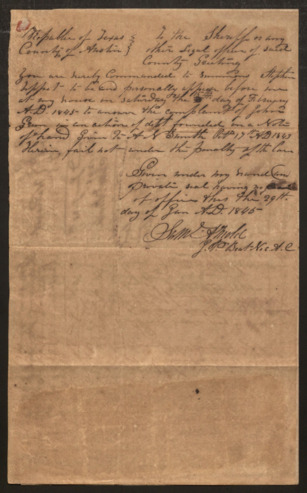 Republic of Texas } To the Sheriff or any
County of Austin } other Legal officer of said
County Greeting
You are hereby Commanded to Summons Stephen
to be and personally appear before me
at my house on Saturday the day of
A.D. 1845 to answer the complaint of John
in an action of debt founded on a Note
of hand given to A. N. Oct 17th AD 1842
Herein fail not under the penalty of the law
Given under my hand and
private seal having no seal
of office this the 29th
day of Jan A.D. 1845
Saml
J. P. A. C.